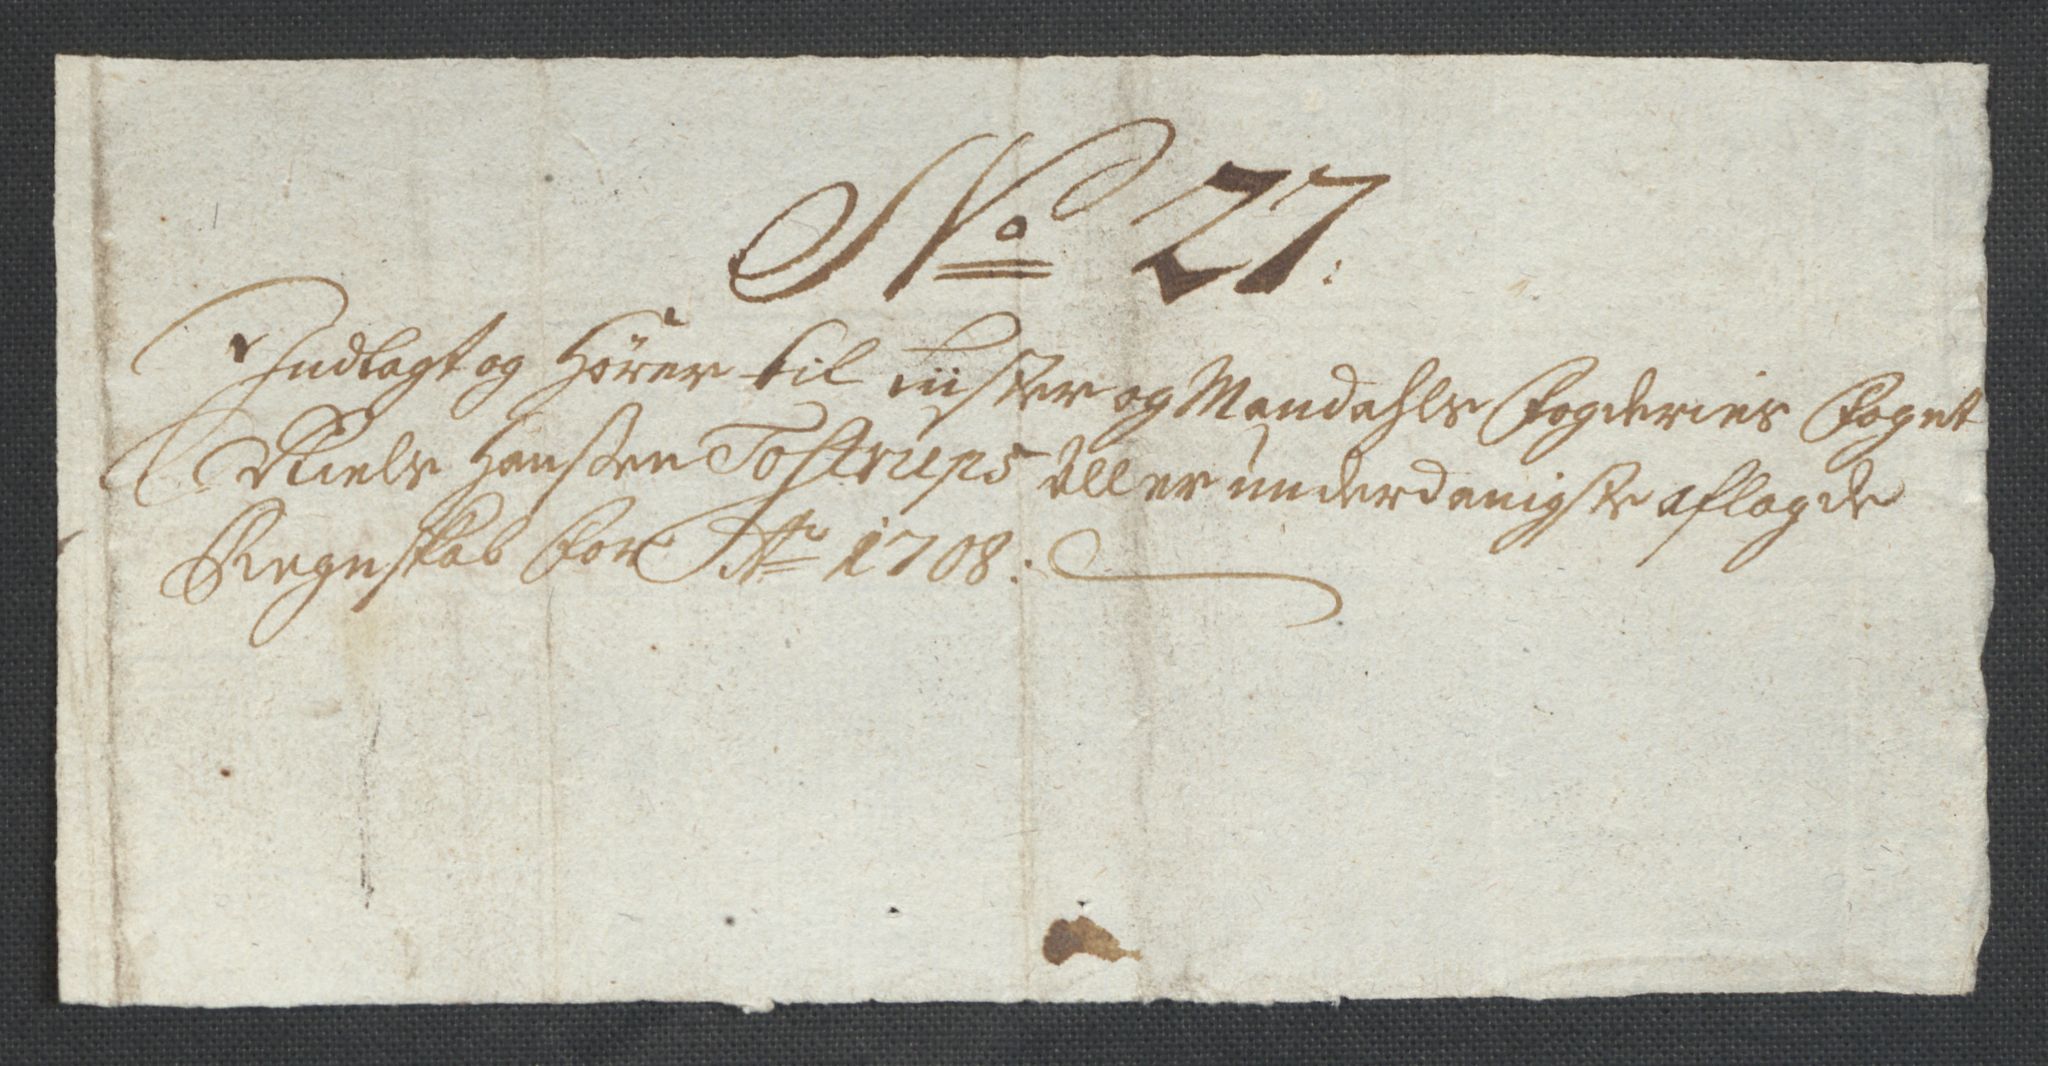 No 27.
Indlagt og Hører til Lister og Mandahls Fogderies Foget
Niels Hanssen Tostrups Aller underdanigste aflagde
Regnskab for Ao 1708.